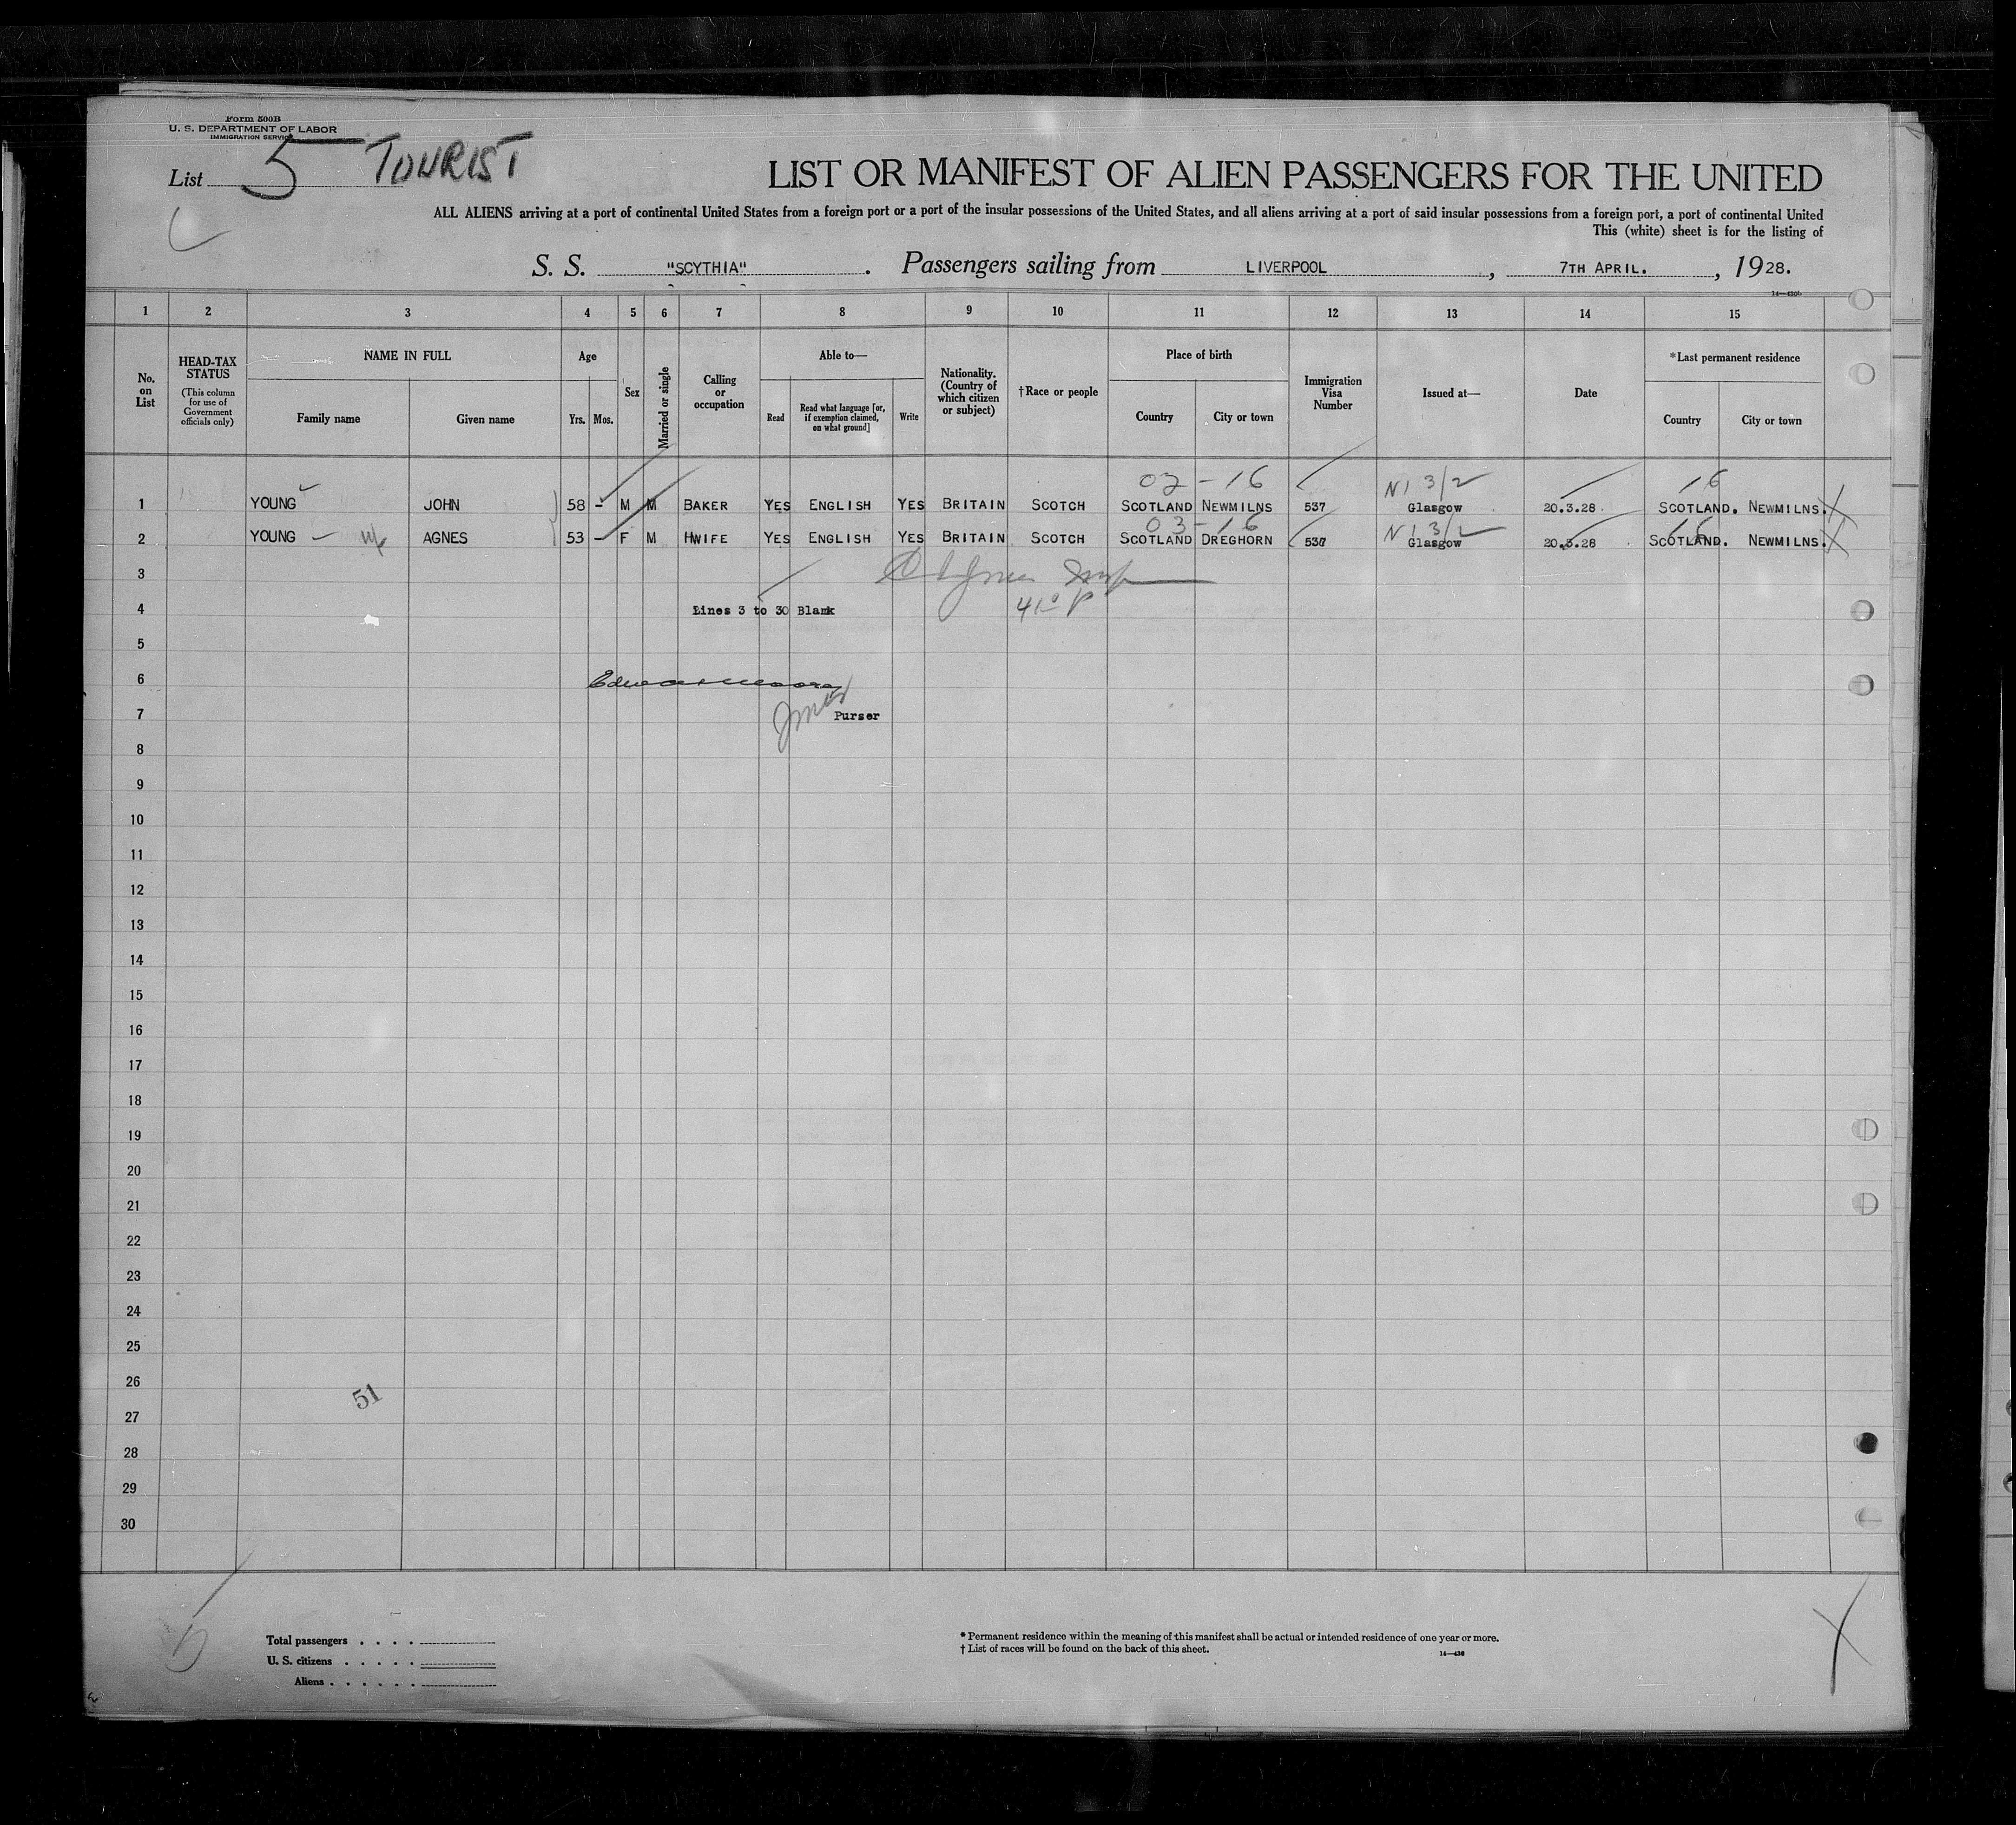 Form 500B
U. S. DEPARTMENT OF LABOR
IMMIGRATION SERVICE
List 5 TOURIST
LIST OR MANIFEST OF ALIEN PASSENGERS FOR THE UNITED
ALL ALIENS arriving at a port of continental United States from a foreign port or a port of the insular possessions of the United States, and all aliens arriving at a port of said insular possessions from a foreign port, a port of continental United
This (white) sheet is for the listing of
S. S. "SCYTHIA". Passengers sailing from LIVERPOOL, 7TH APRIL., 1928.
1 2 3 4 5 6 7 8 9 10 11 12 13 14 15
No. on List
HEAD-TAX STATUS
(This column for use of Government officials only)
NAME IN FULL
Family name Given name
Age
Yrs. Mos.
Sex
Married or single
Calling or occupation
Able to—
Read Read what language [or, if exemption claimed, on what ground] Write
Nationality. (Country of which citizen or subject)
†Race or people
Place of birth
Country City or town
Immigration Visa Number
Issued at—
Date
*Last permanent residence
Country City or town
16 N1 3/2 16
1 YOUNG JOHN 58 - M M BAKER YES ENGLISH YES BRITAIN SCOTCH SCOTLAND NEWMILNS 537 Glasgow 20.3.28 SCOTLAND. NEWMILNS.
03-16 N1 3/2 16
2 YOUNG AGNES 53 - F M HWIFE YES ENGLISH YES BRITAIN SCOTCH SCOTLAND DREGHORN Glasgow 20.3.28 SCOTLAND. NEWMILNS.
3
4 Lines 3 to 30 Blank
5
6
7 Purser
8
9
10
11
12
13
14
15
16
17
18
19
20
21
22
23
24
25
26 51
27
28
29
30
Total passengers
U. S. citizens
Aliens
* Permanent residence within the meaning of this manifest shall be actual or intended residence of one year or more.
† List of races will be found on the back of this sheet.